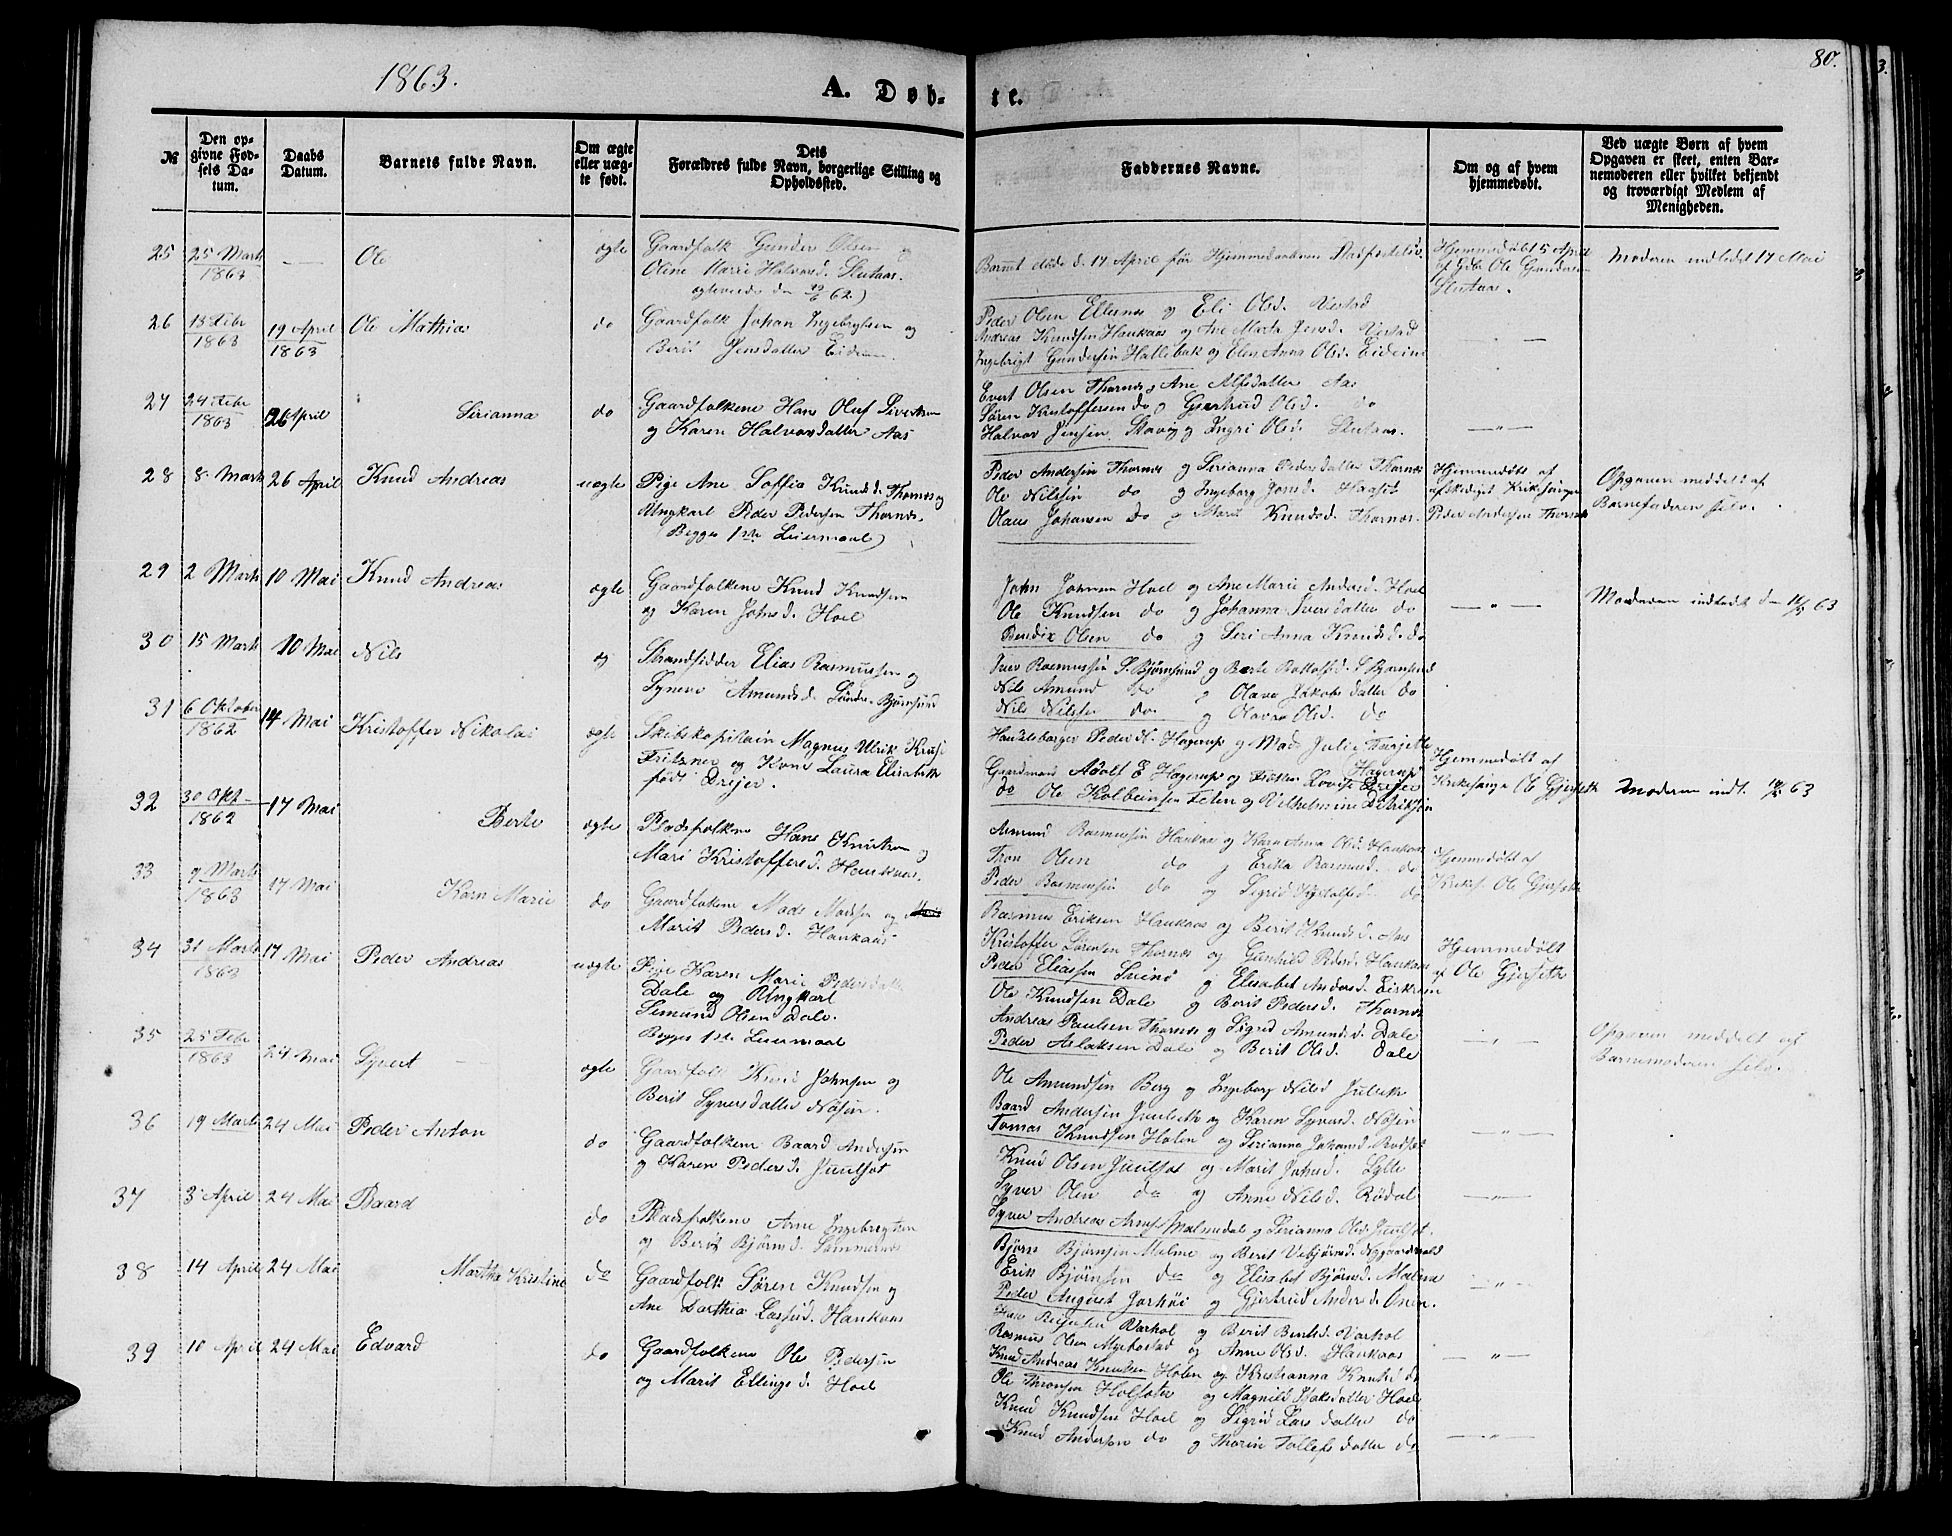 1863.
A. Døb-
te.
80.
3.
№
Den op-
givne Fød-
sels Da-
tum.
Daabs
Datum.
Barnets fulde Navn.
Om ægte
eller uæg-
te født.
Dets
Forældres fulde Navn, borgerlige Stilling og
Opholdssted.
Faddernes Navne.
Om og af hvem
hjemmedøbt.
Ved uægte Børn af hvem
Opgaven er skeet, enten Bar-
nemoderen eller hvilket bekjendt
og troværdigt Medlem af
Menigheden.
25 25 Marts 1863 — Ole ægte Gaardfolk Gunder Olsen og
Oline Marie Halvorsd. Slutaas.
Barnet døde d. 17 April før Hjemmedaaben
Hjemmedøbt 5 April
af Gbr. Ole Gundersen
Slutaas.
Moderen indledet 17 Mai
26 13 Febr 1863 19 April 1863 Ole Mathias do Gaardfolk Johan Ingebrigtsen og
Berit Jensdatter Eideim.
Peder Olsen Ellesnes og Eli Olsd. Vestad
Andreas Knudsen Haukaas og Ane Marta Jensd. Vestad
Ingebrigt Gundersen Hallebak og Elen Anna Olsd. Eideim
27 24 Febr 1863 26 April Serianna do Gaardfolkene Hans Oluf Sivertsen
og Karen Halvorsdatter Aas
Evert Olsen Thornes og Ane Alfsdatter Aas
Søren Kristoffersen do og Gjertrud Olsd. do
Halvor Jensen Stavig og Ingri Olsd. Slutaas.
28 8 Marts 26 April Knud Andreas uægte Pige Ane Soffia Knudsd. Thornes og
Ungkarl Peder Pedersen Thornes.
(Begges 1ste Leiermaal)
Peder Andersen Thornes og Serianna Pedersdatter Thornes
Ole Nilssen do og Ingeborg Jonsd. Haaset
Olaus Johansen do og Marit Knudsd. Thornes.
Hjemmedøbt af
afskediget Kirkesanger
Peder Andersen Thornes
Opgaven meddelt af
Barnefaderen selv.
29 2 Marts 10 Mai Knud Andreas ægte Gaardfolkene Knud Knudsen
og Karen Johnsd. Hoel
John Johnsen Hoel og Ane Marie Andersd. Hoel
Ole Knudsen do og Johanna Iversdatter do
Bendix Olsen do og Seri Anna Knudsd. do
Moderen indledet d. 10/5 63
30 15 Marts 10 Mai Nils æg Strandsidder Elias Rasmussen og
Synevo Amundsd. Søndre Bjørnsund
Iver Rasmussen S. Bjørnsund og Berte Rottolfsd. S Bjørnsund
Nils Amund do og Olava Jakobsdatter do
Nils Nilssen do og Olavra Olsd. do
31 6 Oktober 1862 14 Mai Kristoffer Nikolai ægte Skibskapitain Magnus Ulrik Kruse
Fritzner og Kone Laura Elisabeth
født Dreyer.
Handelsborger Peder H. Hagerup og Mad. Julie Hagerup
Gaardmand Adolf E Hagerup og Frøken Lovise Dreyer
do Ole Kolbeinsen Eelen og Vilhelmine Didriksen
Hjemmedøbt af
Kirkesanger Ole Gjerseth
Moderen indl. 14/5 63
32 30 Okt 1862 17 Mai Berte ægte Pladsfolkene Hans Knutsen og
Mari Kristoffersd. Haukaas.
Amund Rasmussen Haukaas og Karn Anna Olsd. Haukaas
Tron Olsen do og Erika Rasmusd. do
Peder Rasmussen do og Sigrid do
Hjemmedøbt af
Kirkes. Ole Gjerseth
33 9 Marts 1863 17 Mai Karn Marie do Gaardfolkene Mads Madsen og
Marit Pedersd. Haukaas
Rasmus Eriksen Haukaas og Berit Knudsd. Aas
Kristoffer Sørensen Thornes og Gunhild Pedersd. Haukaas
Peder Eliassen og Elisabet Andersd. Eiskrem
Hjemmedøbt
af Ole Gjerseth
34 31 Marts 1863 17 Mai Peder Andreas uægte Pige Karen Marie Pedersdatter
Dale og Ungkarl
Semund Olsen Dale.
Begges 1ste Leiermaal
Ole Knudsen Dale og Berit Pedersd. Thornes
Andreas Paulsen Thornes og Sigrid Amundsd. Dale
Peder Aslaksen Dale og Berit Olsd. Dale
Opgaven meddelt af
Barnemoderen selv.
35 25 Febr 1863 24 Mai Syvert ægte Gaardfolk Knud Johnsen og
Berit Syversdatter Nøsen.
Ole Amundsen Berg og Ingeborg Nilsd Julseth
Baard Andersen Juulseth og Karen Syversd. Nøsen
Tomas Knudsen Holen og Serianna Johansd. Rødset
36 19 Marts 24 Mai Peder Anton do Gaardfolkene Baard Andersen
og Karen Pedersd. Juulset
Knud Olsen Juulset og Marit Johnsd. Lylle
Syver Olsen do og Anne Nilsd. Rødal
Syver Andreas Arnes Malmedal og Serianna Olsd. Juulset.
37 3 April 24 Mai Baard do Pladsfolkene Arne Ingebregtsen
og Berit Bjørnsd. Sommernes
Bjørn Bjørnsen Malme og Berit Vebjørnsd. Nygaardsvold
Erik Bjørnsen do og Elisabet Bjørnsd. Malme
Peder August Jarhøi og Gjertrud Andersd. Onen.
38 14 April 24 Mai Martha Kristine do Gaardfolk Søren Knudsen og
Ane Dorthia Lassesd. Haukaas
Varhol og Berit Bentsd. Varhol
Rasmus Olsen Myrbostad og Anne Olsd. Haukaas
Knud Andreas Knudsen Holen og Kristianna Knutsd do
39 10 April 24 Mai Edvard do Gaardfolkene Ole Pedersen
og Marit Ellingsd. Hoel
Ole Thronsen Holsæter og Magnild Isaksdatter Hoel
Knud Knudsen Hoel og Sigrid Larsdatter do
Knud Andersen do og Thorine Tollefsdatter do